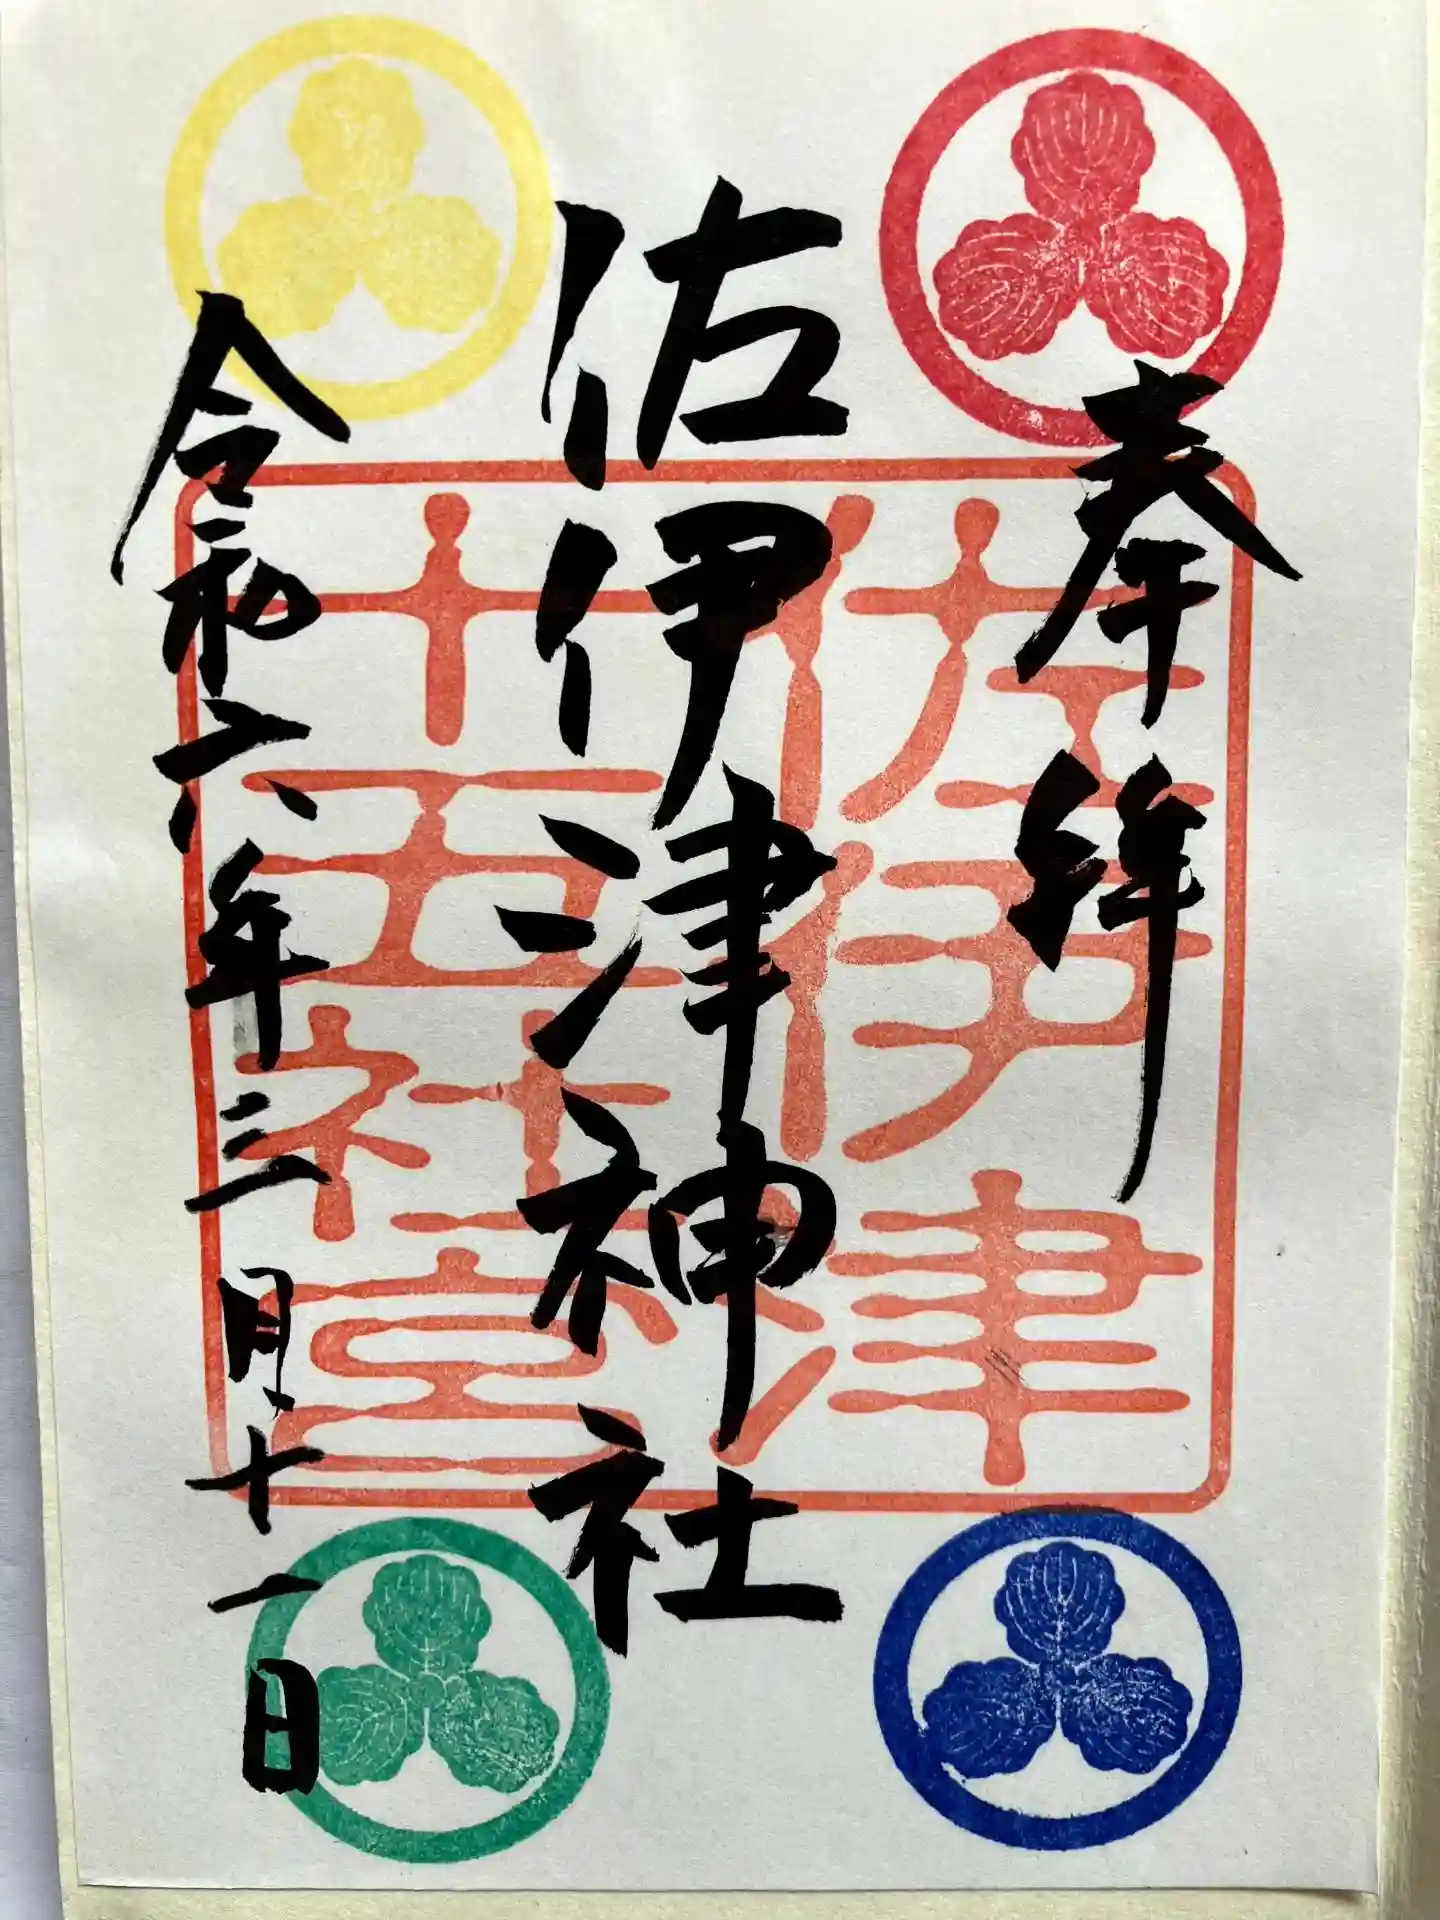 奉拝
佐伊津神社
令和六年三月十一日
佐伊津
十五社宮